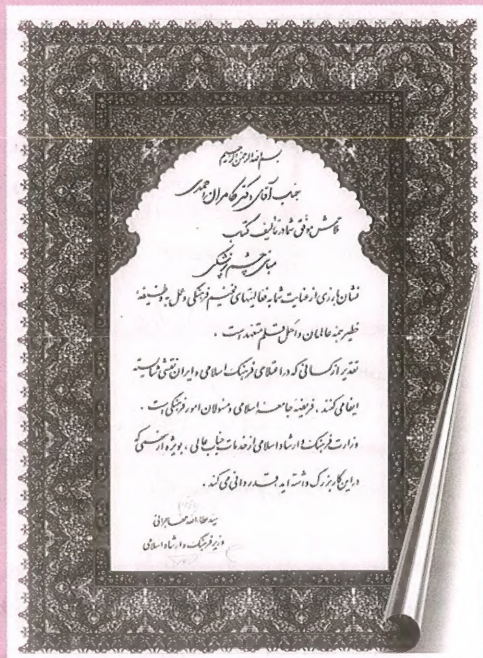 بسم الله الرحمن الرحیم
جناب آقای دکتر کامران احمدی
تلاش موفق شما در تألیف کتاب
مبانی چشم پزشکی
نشان بارزی از عنایت شما به فعالیتهای فخیم فرهنگی و عمل به وظیفهٔ
خطیر همهٔ عالمان و اهل قلم متعهد است .
تقدیر از کسانی که در اعتلای فرهنگ اسلامی و ایران نقشی شایسته
ایفا می کنند ، فریضه جامعه اسلامی و مسئولان امور فرهنگی است .
وزارت فرهنگ و ارشاد اسلامی از خدمات جناب عالی ، بویژه از سهمی که
در این کار بزرگ داشته اید ، قدردانی می کند .
سید عطاءالله مهاجرانی
وزیر فرهنگ و ارشاد اسلامی